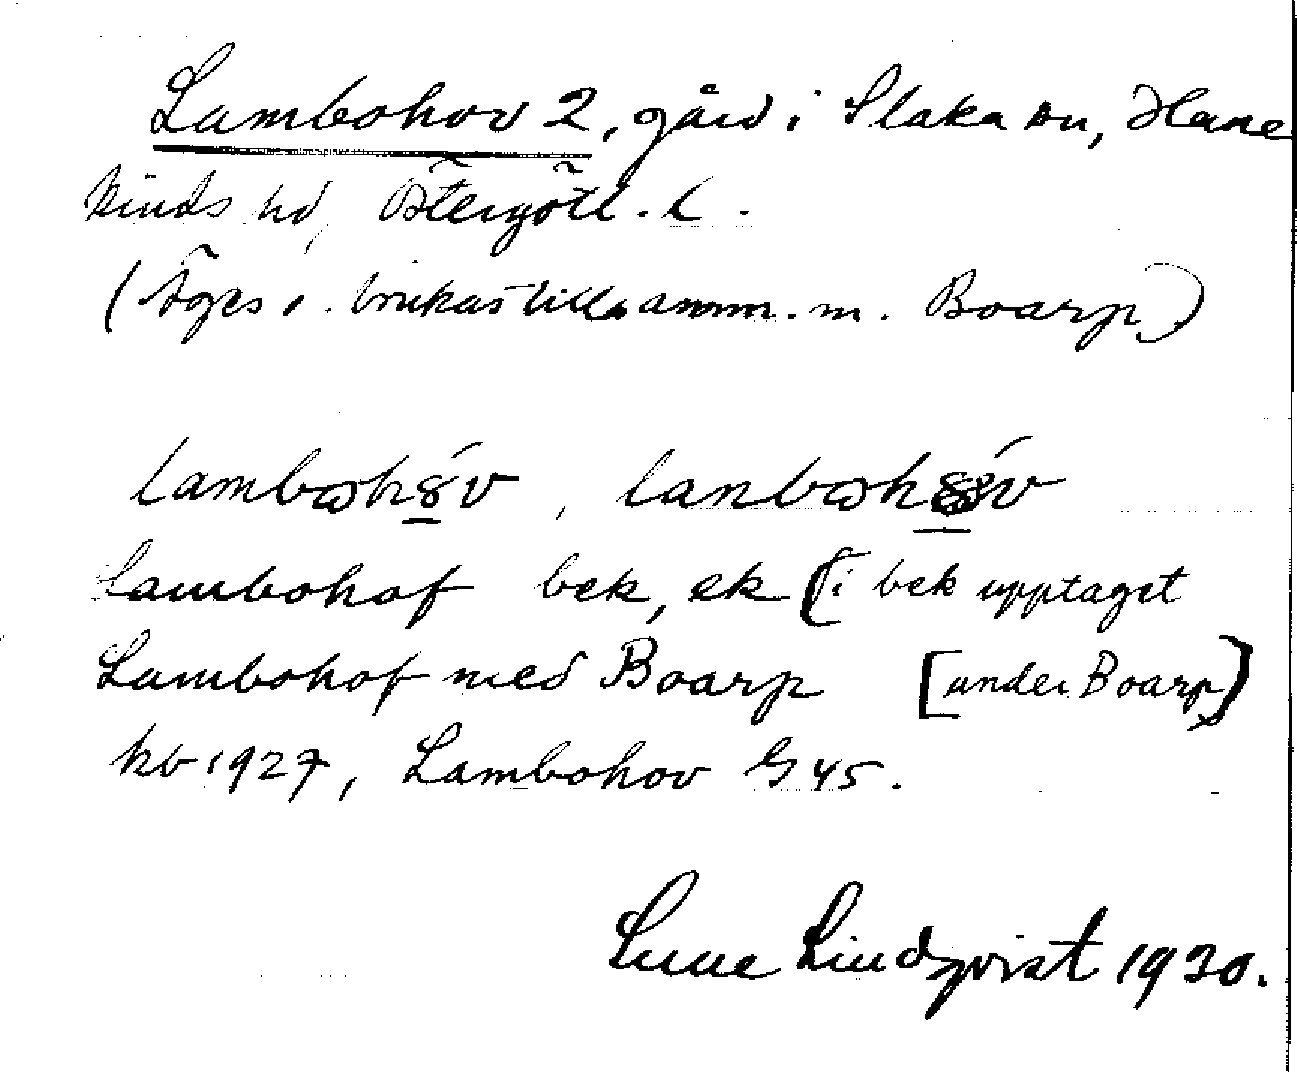 Lambohov 2, gård i Slaka sn, Hane
kinds hd, Östergötl. l.
(Äges o. brukas tillsamm. m. Boarp)
lambωhȣ́v, lanbωhȣ́v
Lambohof bek, ek (i bek upptaget
Lambohof med Boarp [under Boarp)
kb 1927, Lambohov G 45.
Sune Lindqvist 1930.